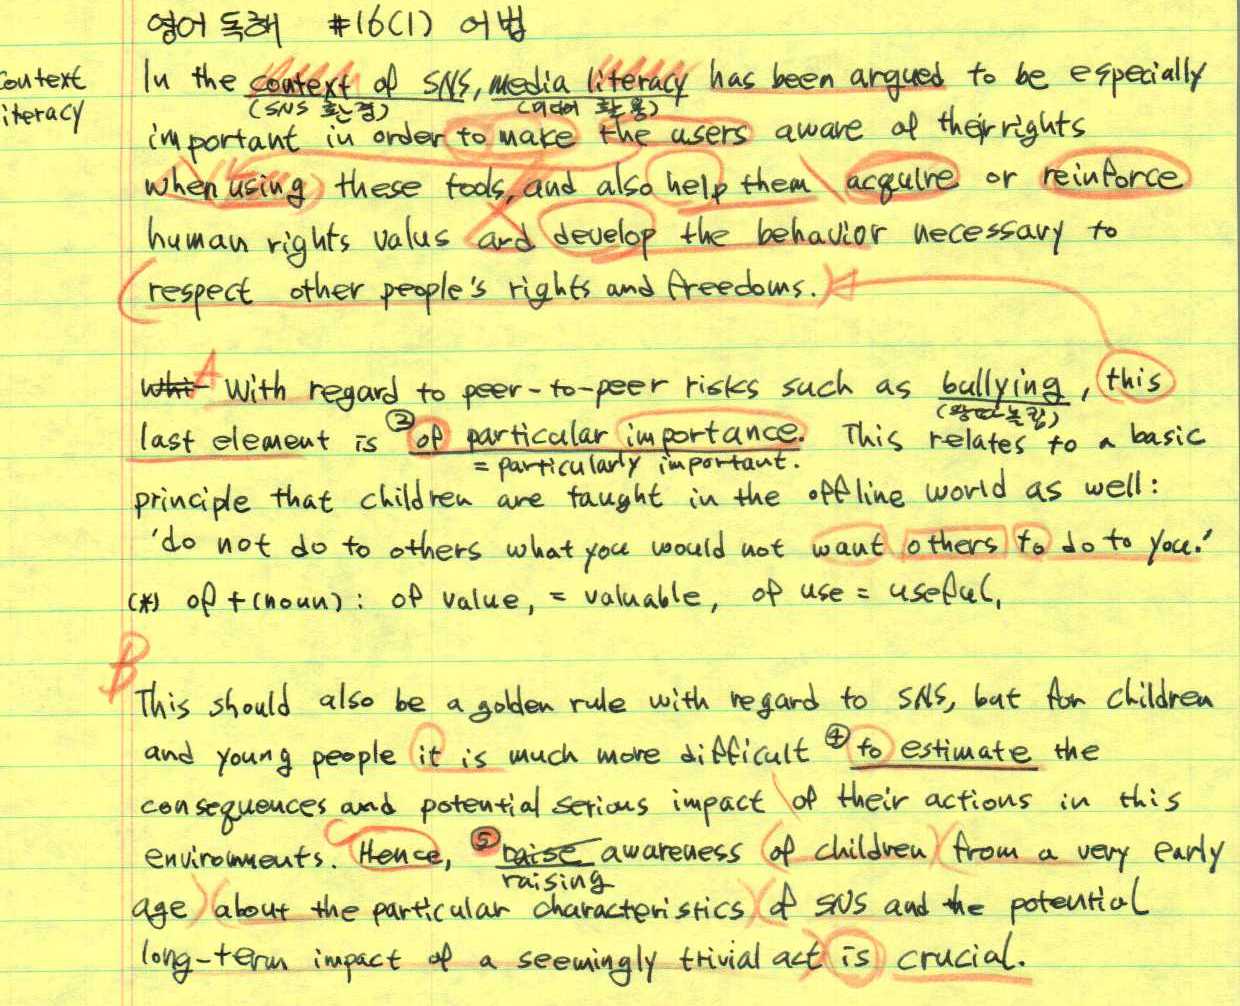 영어 독해 #16(1) 어법
context
literacy
In the context of SNS, media literacy has been argued to be especially
(SNS 환경) (미디어 활용)
important in order to make the users aware of their rights
when using these tools, and also help them acquire or reinforce
human rights valus and develop the behavior necessary to
respect other people's rights and freedoms.
whi A With regard to peer-to-peer risks such as bullying, this
(왕따 놀림)
last element is ③ of particular importance. This relates to a basic
= particularly important.
principle that children are taught in the offline world as well:
'do not do to others what you would not want others to do to you.'
(*) of + (noun): of value, = valuable, of use = useful,
B
This should also be a golden rule with regard to SNS, but for children
and young people it is much more difficult ④ to estimate the
consequences and potential serious impact of their actions in this
environments. Hence, ⑤ raise awareness of children from a very early
raising
age about the particular characteristics of SNS and the potential
long-term impact of a seemingly trivial act is crucial.